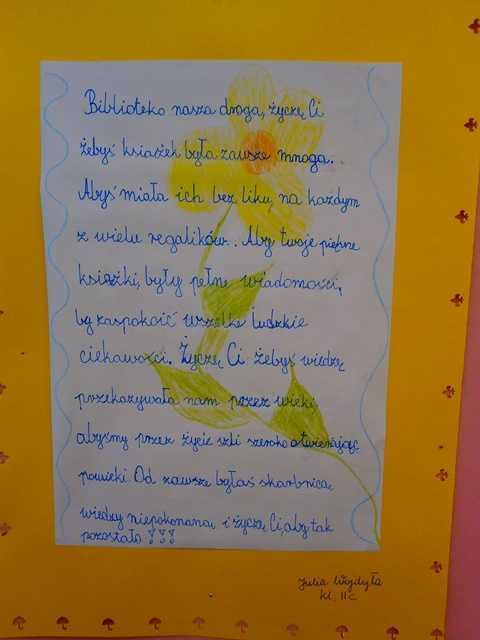 Biblioteko nasza droga, życzę Ci
żebyś książek była zawsze mnoga..
Abyś miała ich bez liku, na każdym
z wielu regalików.. Aby twoje piękne
książki, były pełne wiadomości,
by zaspokoić wszelkie ludzkie
ciekawości. Życzę Ci żebyś wiedzę
przekazywała nam przez wieki,
abyśmy przez życie szli szeroko otwierając
powieki. Od zawsze byłaś skarbnicą
wiedzy niepokonaną, i życzę Ci, aby tak
pozostało !!!
Julia Wojdyła
kl. II c